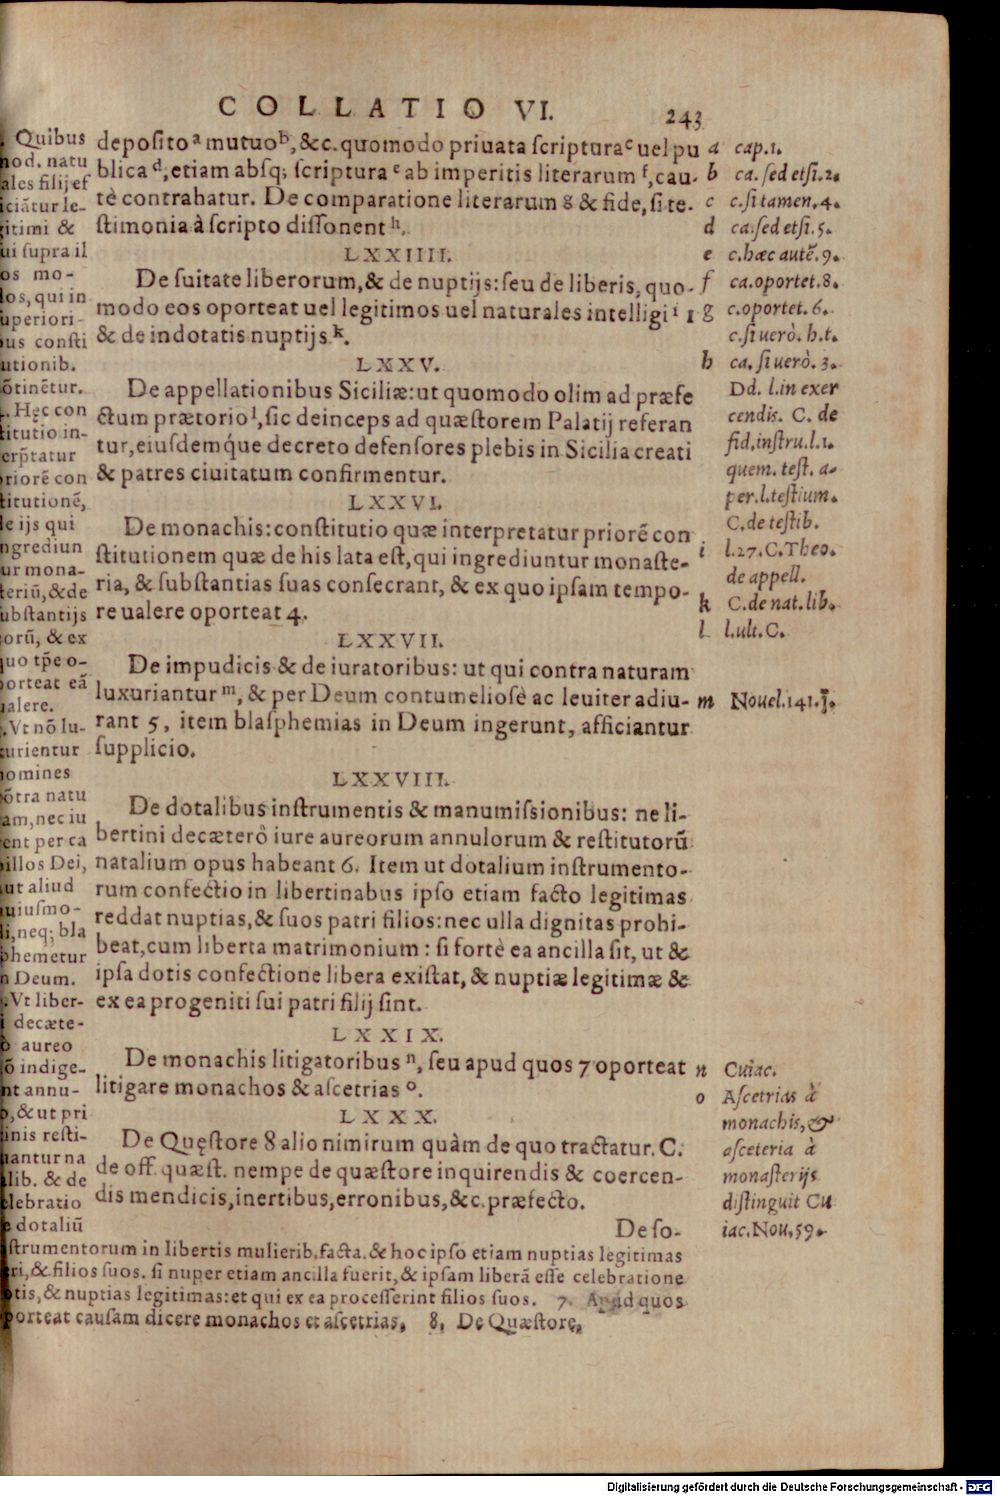 COLLATIO VI. 243
deposito a mutuo b, &c. quomodo priuata scriptura c uel pu
blica d, etiam absq; scriptura e ab imperitis literarum f, cau-
tè contrahatur. De comparatione literarum g & fide, si te-
stimonia à scripto dissonent h.
LXXIIII.
De suitate liberorum, & de nuptijs: seu de liberis, quo-
modo eos oporteat uel legitimos uel naturales intelligi i 1
& de indotatis nuptijs k.
LXXV.
De appellationibus Siciliæ: ut quomodo olim ad præfe
ctum prætorio l, sic deinceps ad quæstorem Palatij referan
tur, eiusdemq́ue decreto defensores plebis in Sicilia creati
& patres ciuitatum confirmentur.
LXXVI.
De monachis: constitutio quæ interpretatur priorẽ con
stitutionem quæ de his lata est, qui ingrediuntur monaste-
ria, & substantias suas consecrant, & ex quo ipsam tempo-
re ualere oporteat 4.
LXXVII.
De impudicis & de iuratoribus: ut qui contra naturam
luxuriantur m, & per Deum contumeliosè ac leuiter adiu-
rant 5, item blasphemias in Deum ingerunt, afficiantur
supplicio.
LXXVIII.
De dotalibus instrumentis & manumissionibus: ne li-
bertini decæterò iure aureorum annulorum & restitutorũ
natalium opus habeant 6. Item ut dotalium instrumento-
rum confectio in libertinabus ipso etiam facto legitimas
reddat nuptias, & suos patri filios: nec ulla dignitas prohi-
beat, cum liberta matrimonium: si fortè ea ancilla sit, ut &
ipsa dotis confectione libera existat, & nuptiæ legitimæ &
ex ea progeniti sui patri filij sint.
LXXIX.
De monachis litigatoribus n, seu apud quos 7 oporteat
litigare monachos & ascetrias o.
LXXX.
De Quęstore 8 alio nimirum quàm de quo tractatur. C.
de off. quæst. nempe de quæstore inquirendis & coercen-
dis mendicis, inertibus, erronibus, &c. præfecto.
De so-
a cap.1.
b ca. sed etsi.2.
c c. si tamen.4.
d ca. sed etsi.5.
e c. hæc autẽ.9.
f ca. oportet.8.
g c. oportet.6.
c. si uerò. h.t.
h ca. si uerò.3.
Dd. l. in exer
cendis. C. de
fid. instru. l.1.
quem. test. a-
per. l. testium.
C. de testib.
i l.27. C. Theo.
de appell.
k C. de nat. lib.
l l. ult. C.
m Nouel.141.
n Cuiac.
o Ascetrias à
monachis, &
asceteria à
monasterijs
distinguit Cu
iac. Nou.59.
Quibus
nod. natu
ales filij ef
iciãtur le-
gitimi &
ui supra il
os mo-
los, qui in
uperiori-
us consti
utionib.
õtinẽtur.
Hęc con
titutio in-
riorẽ con
titutionẽ,
e ijs qui
ngrediun
ur mona-
teriũ, & de
ubstantijs
orũ, & ex
uo tp̃e o-
orteat eã
alere.
Vt nõ lu-
urientur
omines
õtra natu
am, nec iu
ent per ca
illos Dei,
ut aliud
uiusmo-
i, neq; bla
phemetur
n Deum.
Vt liber-
i decæte-
ò aureo
õ indige-
nt annu-
o, & ut pri
inis resti-
uantur na
lib. & de
elebratio
e dotaliũ
strumentorum in libertis mulierib. facta. & hoc ipso etiam nuptias legitimas
ri, & filios suos. si nuper etiam ancilla fuerit, & ipsam liberã esse celebratione
otis, & nuptias legitimas: et qui ex ea processerint filios suos. 7. Apud quos
porteat causam dicere monachos et ascetrias. 8. De Quæstore.
Digitalisierung gefördert durch die Deutsche Forschungsgemeinschaft - DFG